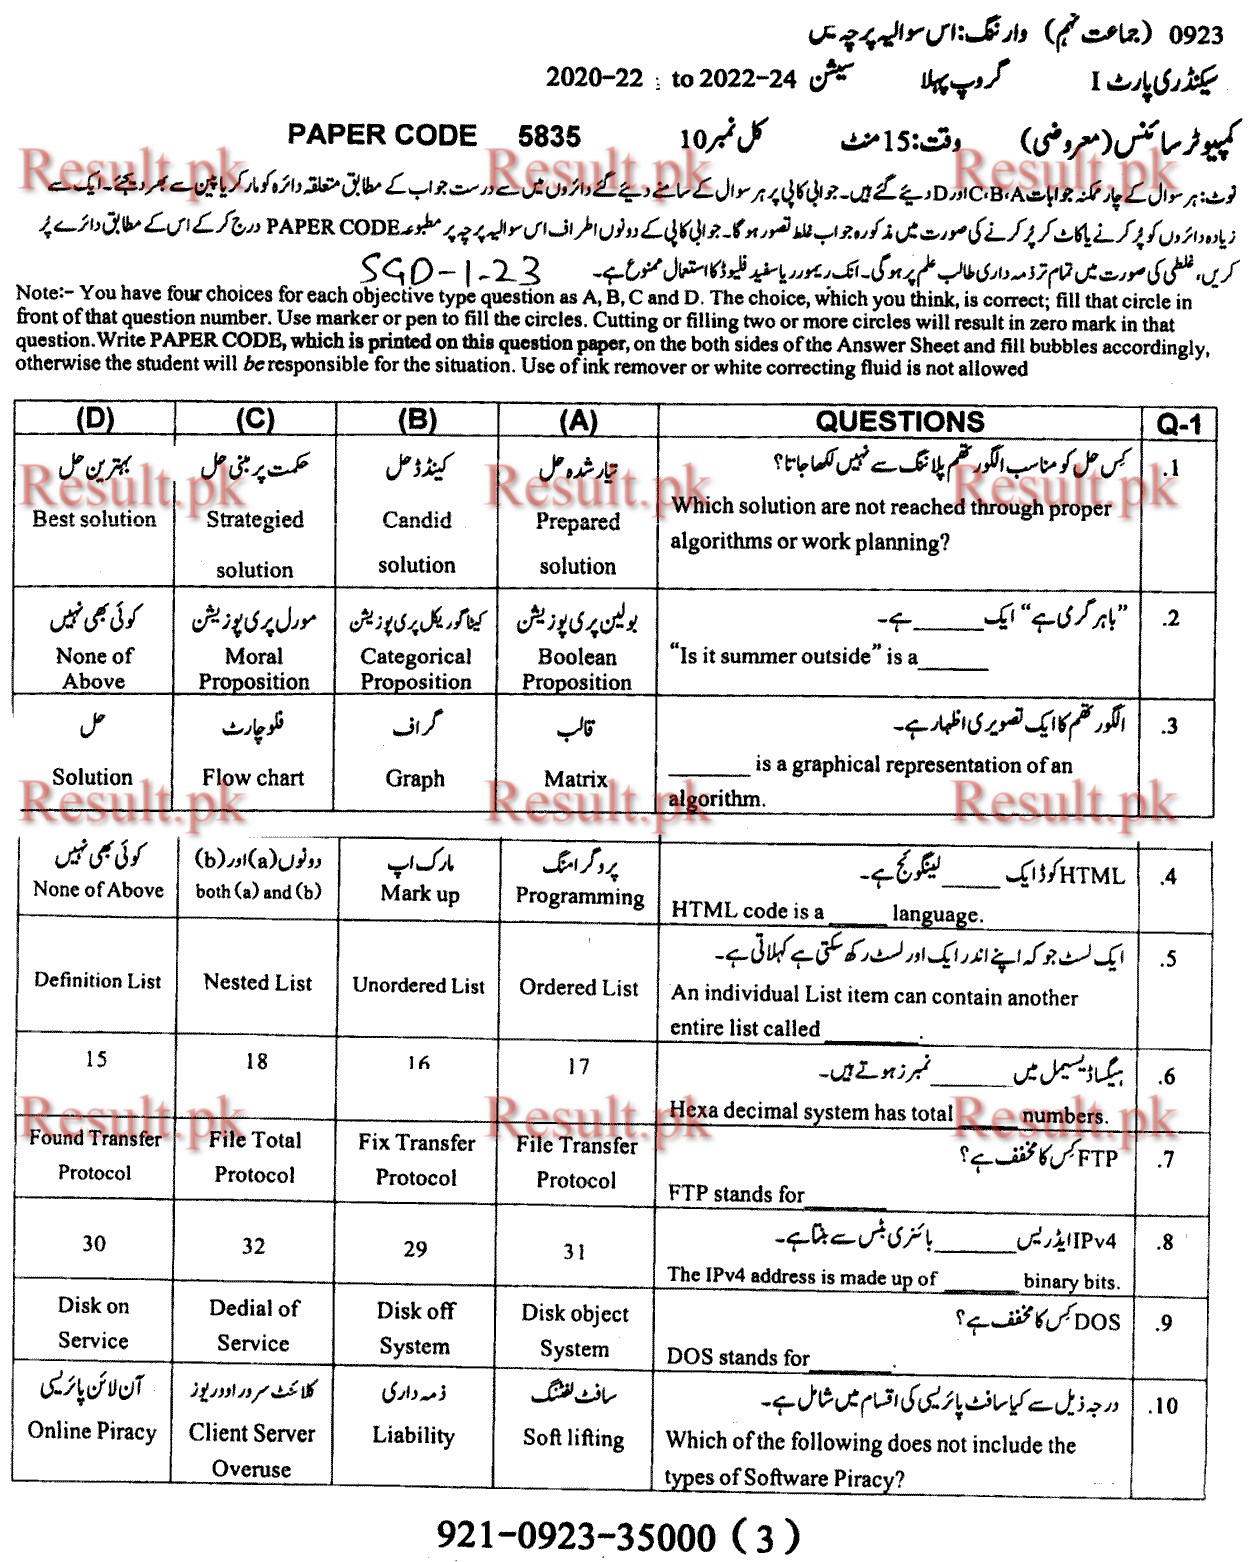 0923 (جماعت نہم) وارننگ: اس سوالیہ پرچہ میں
سیکنڈری پارٹ I گروپ پہلا سیشن 2020-22 to 2022-24
کمپیوٹر سائنس (معروضی) وقت: 15 منٹ کل نمبر 10 PAPER CODE 5835
نوٹ: ہر سوال کے چار ممکنہ جوابات C، B، A اور D دیئے گئے ہیں۔ جوابی کاپی پر ہر سوال کے سامنے دیئے گئے دائروں میں سے درست جواب کے مطابق متعلقہ دائرہ کو مارکر یا پین سے بھر دیجئے۔ ایک سے
زیادہ دائروں کو پُر کرنے یا کاٹ کر پُر کرنے کی صورت میں مذکورہ جواب غلط تصور ہوگا۔ جوابی کاپی کے دونوں اطراف اس سوالیہ پرچہ پر مطبوعہ PAPER CODE درج کر کے اس کے مطابق دائرے پُر
کریں، غلطی کی صورت میں تمام تر ذمہ داری طالب علم پر ہوگی۔ انک ریموور یا سفید فلیوڈ کا استعمال ممنوع ہے۔ SGD-1-23
Note:- You have four choices for each objective type question as A, B, C and D. The choice, which you think, is correct; fill that circle in
front of that question number. Use marker or pen to fill the circles. Cutting or filling two or more circles will result in zero mark in that
question. Write PAPER CODE, which is printed on this question paper, on the both sides of the Answer Sheet and fill bubbles accordingly,
otherwise the student will be responsible for the situation. Use of ink remover or white correcting fluid is not allowed
(D) (C) (B) (A) QUESTIONS Q-1
بہترین حل حکمت پر مبنی حل کینڈڈ حل تیار شدہ حل کس حل کو مناسب الگورتھم پلاننگ سے نہیں لکھا جاتا؟ .1
Best solution Strategied Candid Prepared Which solution are not reached through proper
solution solution solution algorithms or work planning?
کوئی بھی نہیں مورل پری پوزیشن کیٹاگوریکل پری پوزیشن بولین پری پوزیشن ”باہر گرمی ہے“ ایک ______ ہے۔ .2
None of Moral Categorical Boolean “Is it summer outside” is a______
Above Proposition Proposition Proposition
حل فلو چارٹ گراف قالب الگورتھم کا ایک تصویری اظہار ہے۔ .3
Solution Flow chart Graph Matrix ______ is a graphical representation of an
algorithm.
کوئی بھی نہیں دونوں (a) اور (b) مارک اپ پروگرامنگ HTML کوڈ ایک ______ لینگوئج ہے۔ .4
None of Above both (a) and (b) Mark up Programming HTML code is a ______ language.
ایک لسٹ جو کہ اپنے اندر ایک اور لسٹ رکھ سکتی ہے کہلاتی ہے۔ .5
Definition List Nested List Unordered List Ordered List An individual List item can contain another
entire list called ________.
15 18 16 17 ہیگساڈیسیمل میں ______ نمبرز ہوتے ہیں۔ .6
Hexa decimal system has total ______ numbers.
Found Transfer File Total Fix Transfer File Transfer FTP کس کا مخفف ہے؟ .7
Protocol Protocol Protocol Protocol FTP stands for______
30 32 29 31 IPv4 ایڈریس ______ بائنری بٹس سے بنتا ہے۔ .8
The IPv4 address is made up of ______ binary bits.
Disk on Dedial of Disk off Disk object DOS کس کا مخفف ہے؟ .9
Service Service System System DOS stands for______.
آن لائن پائریسی کلائنٹ سرور اووریوز ذمہ داری سافٹ لفٹنگ درجہ ذیل سے کیا سافٹ پائریسی کی اقسام میں شامل ہے۔ .10
Online Piracy Client Server Liability Soft lifting Which of the following does not include the
Overuse types of Software Piracy?
921-0923-35000 (3)
Result.pk Result.pk Result.pk
Result.pk Result.pk Result.pk
Result.pk Result.pk Result.pk
Result.pk Result.pk Result.pk